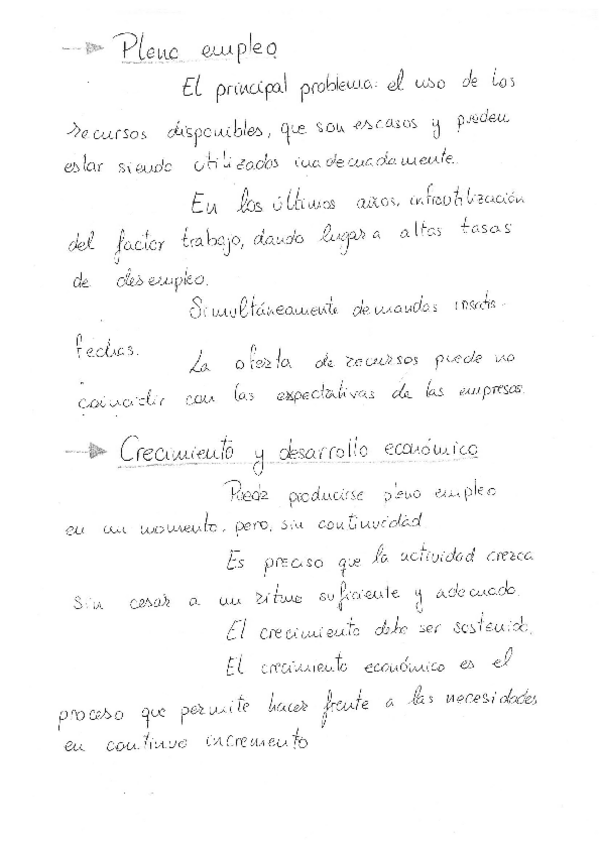 Pleno empleo
El principal problema: el uso de los
recursos disponibles, que son escasos y pueden
estar siendo utilizados inadecuadamente.
En los últimos años, infrautilización
del factor trabajo, dando lugar a altas tasas
de desempleo.
Simultáneamente demandas insatis-
fechas.
La oferta de recursos puede no
coincidir con las expectativas de las empresas.
Crecimiento y desarrollo económico
Puede producirse pleno empleo
en un momento, pero, sin continuidad
Es preciso que la actividad crezca
sin cesar a un ritmo suficiente y adecuado.
El crecimiento debe ser sostenido.
El crecimiento económico es el
proceso que permite hacer frente a las necesidades
en continuo incremento